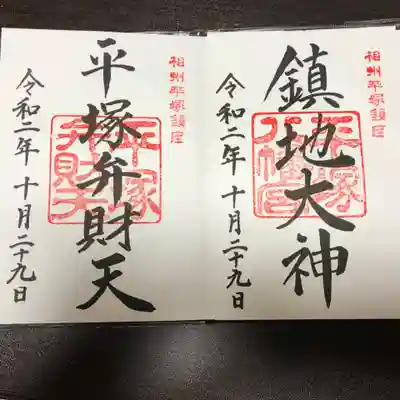 相州平塚鎮座
鎮地大神
平塚八幡宮
令和二年十月二十九日
相州平塚鎮座
平塚弁財天
平塚弁財天
令和二年十月二十九日